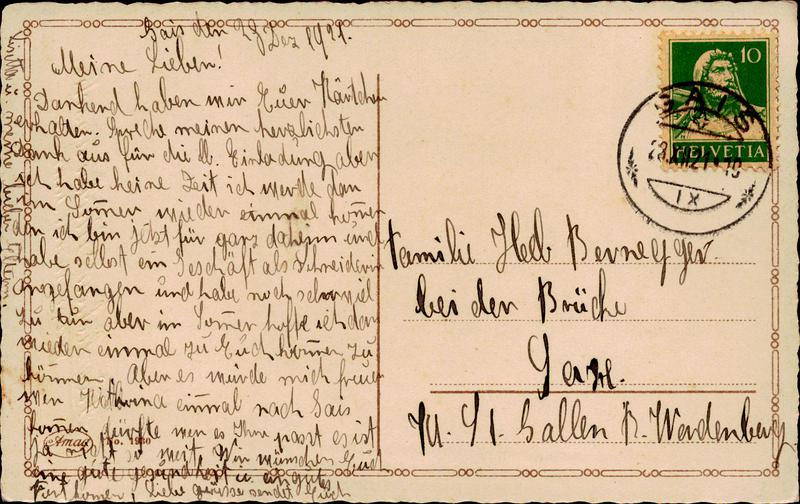 Gais den 28 Dez 1921.
Meine Lieben!
Dankend haben wir Euer Kärtchen
erhalten. Spreche meinen herzlichsten
Dank aus für die lb. Einladung aber
ich habe keine Zeit ich werde dan
im Som̅er wieder einmal kom̅en
den ich bin jetzt für ganz daheim und
habe selbst ein Geschäft als Schneiderin
angefangen und habe noch schon viel
zu tun aber im Som̅er hoffe ich dan
wieder einmal zu Euch kom̅en zu
können. Aber es würde mich freuen
wen einmal nach Gais
kom̅en dürfte wen es Ihr passt es ist
ja nicht so weit. Wir wünschen Euch
eine gute gesundheit u.
Liebe grüsse sendet Euch
meine
10
HELVETIA
GAIS
28.XII.21.-18
IX
Familie Heb Bernegger
bei der Brüche
Kt. St. Gallen B. Werdenberg
Amag No. 1980